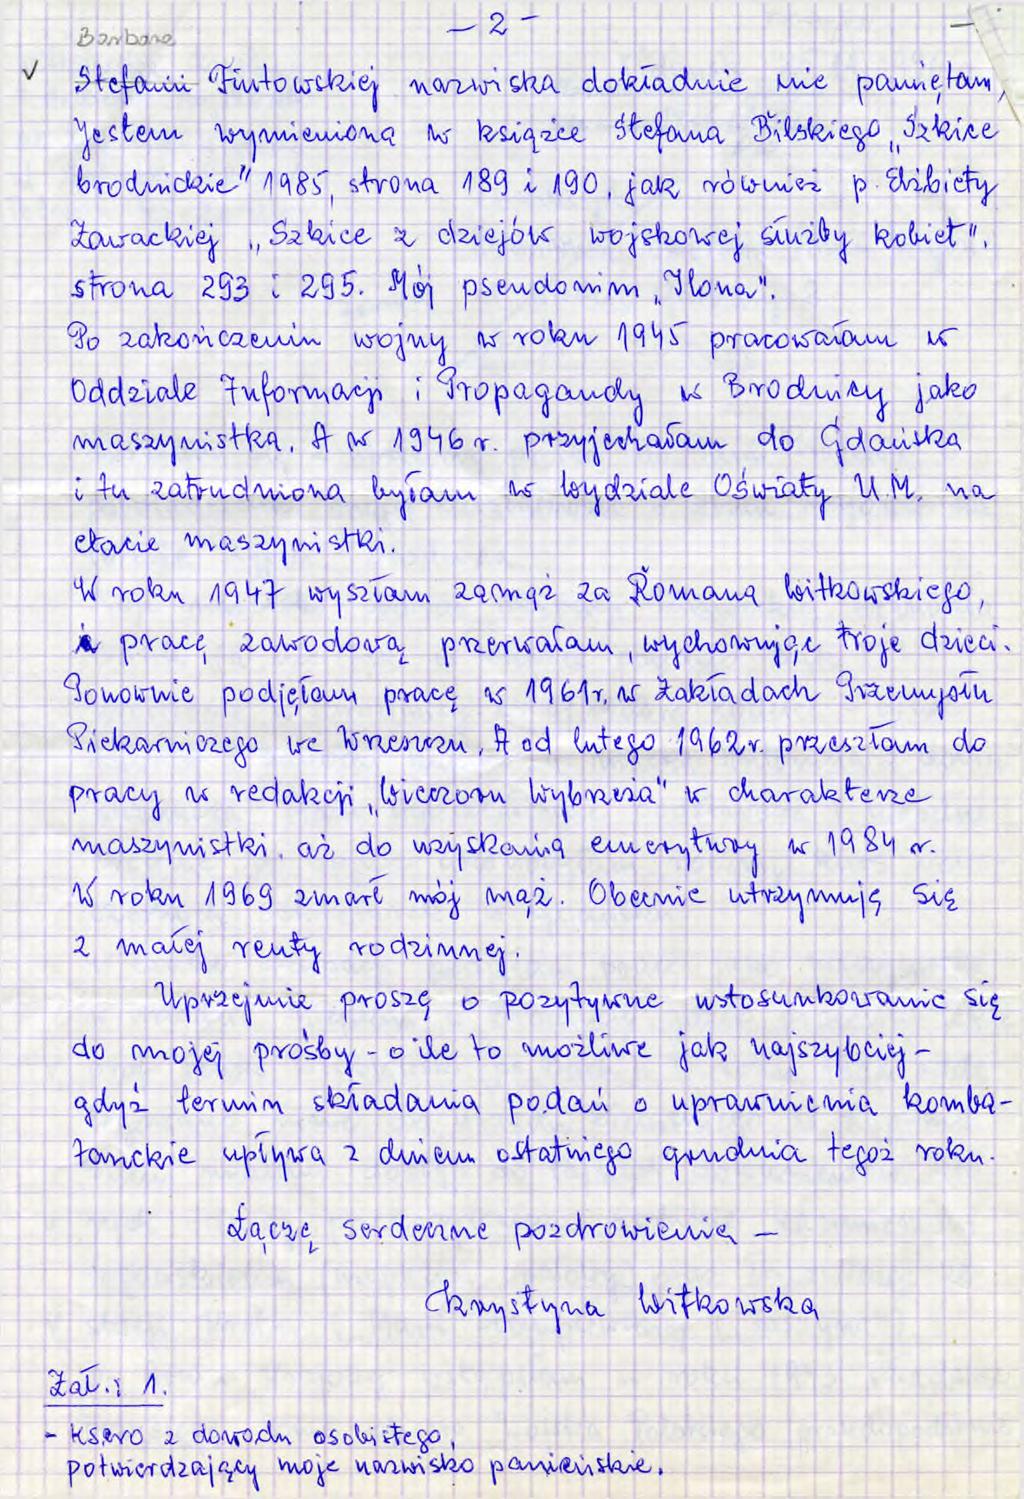 - 2 -
Barbara
√ Stefanii Fiutowskiej nazwiska dokładnie nie pamiętam,
Jestem wymieniona w książce Stefana Bilskiego „Szkice
brodnickie" 1985, strona 189 i 190, jak również p. Elżbiety
Zawackiej „Szkice z dziejów wojskowej służby kobiet",
strona 293 i 295. Mój pseudonim „Ilona".
Po zakończeniu wojny w roku 1945 pracowałam w
Oddziale Informacji i Propagandy w Brodnicy jako
maszynistka. A w 1946 r. przyjechałam do Gdańska
i tu zatrudniona byłam w Wydziale Oświaty U.M. na
etacie maszynistki.
W roku 1947 wyszłam zamąż za Romana Witkowskiego,
i pracę zawodową przerwałam, wychowując troje dzieci.
Ponownie podjęłam pracę w 1961 r. w Zakładach Przemysłu
Piekarniczego we Wrzeszczu, A od lutego 1962 r. przeszłam do
pracy w redakcji „Wieczoru Wybrzeża" w charakterze
maszynistki, aż do uzyskania emerytury w 1984 r.
W roku 1969 zmarł mój mąż. Obecnie utrzymuję się
z małej renty rodzinnej.
Uprzejmie proszę o pozytywne ustosunkowanie się
do mojej prośby - o ile to możliwe jak najszybciej -
gdyż termin składania podań o uprawnienia komba-
tanckie upływa z dniem ostatniego grudnia tegoż roku.
Łączę serdeczne pozdrowienia -
Krystyna Witkowska
Zał.: 1.
- ksero z dowodu osobistego,
potwierdzający moje nazwisko panieńskie.